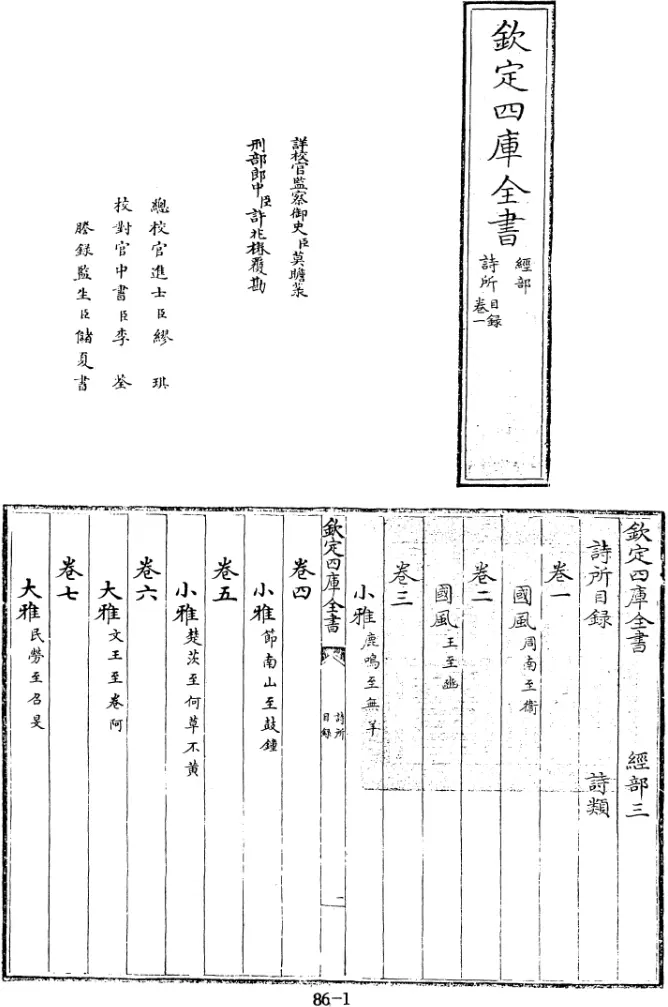 欽定四庫全書
經部
詩所
目録
卷一
詳校官監察御史臣莫瞻菉
刑部郎中臣許兆椿覆勘
總校官進士臣繆琪
校對官中書臣李荃
謄録監生臣儲夏書
欽定四庫全書 經部三
詩所目録 詩類
卷一
國風周南至衛
卷二
國風王至豳
卷三
小雅鹿鳴至無羊
欽定四庫全書
詩所
目録
一
卷四
小雅節南山至鼓鐘
卷五
小雅楚茨至何草不黄
卷六
大雅文王至卷阿
卷七
大雅民勞至召旻
86-1